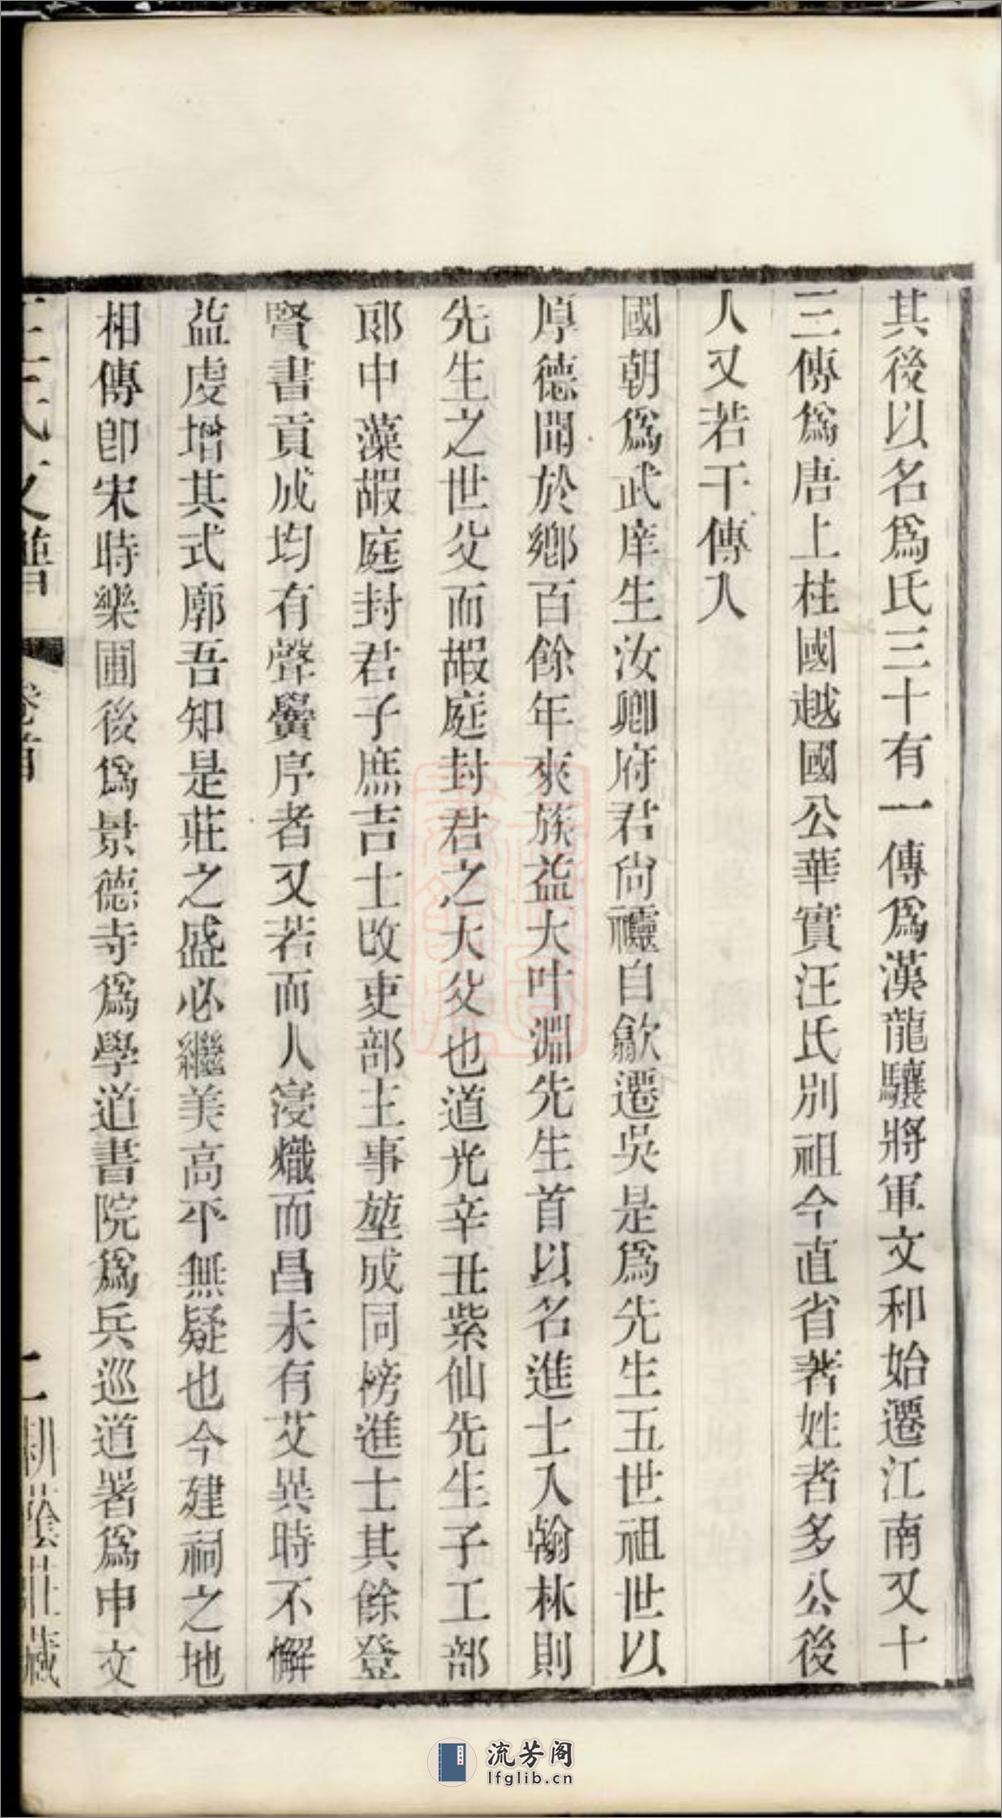 其後以名爲氏三十有一傳爲漢龍驤將軍文和始遷江南又十
三傳爲唐上柱國越國公華實汪氏別祖今直省著姓者多公後
人又若干傳入
國朝爲武庠生汝卿府君尚𤫊自歙遷吳是爲先生五世祖世以
厚德聞於鄉百餘年來族益大叶淵先生首以名進士入翰林則
先生之世父而嘏庭封君之大父也道光辛丑紫仙先生子工部
郎中藻嘏庭封君子庶吉士改吏部主事堃成同榜進士其餘登
賢書貢成均有聲黌序者又若而人寖熾而昌未有艾異時不懈
益虔增其式廓吾知是莊之盛必繼美高平無疑也今建祠之地
相傳卽宋時樂圃後爲景德寺爲學道書院爲兵巡道署爲申文
汪氏支譜
卷首
二
耕蔭莊藏
流芳阁
lfglib.cn